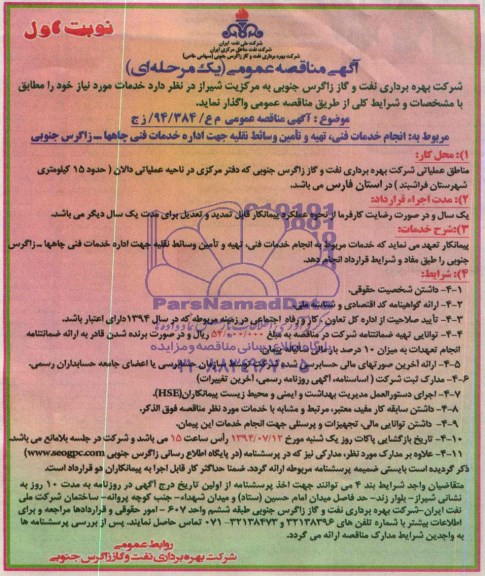 نوبت اول
شرکت ملی نفت ایران
شرکت نفت مناطق مرکزی ایران
شرکت بهره برداری نفت و گاز زاگرس جنوبی (سهامی خاص)
آگهی مناقصه عمومی (یک مرحله‌ای)
شرکت بهره برداری نفت و گاز زاگرس جنوبی به مرکزیت شیراز در نظر دارد خدمات مورد نیاز خود را مطابق
با مشخصات و شرایط کلی از طریق مناقصه عمومی واگذار نماید.
موضوع : آگهی مناقصه عمومی م ع/ ۹۴/۳۸۴/ ز ج
مربوط به: انجام خدمات فنی، تهیه و تأمین وسائط نقلیه جهت اداره خدمات فنی چاهها ــ زاگرس جنوبی
۱): محل کار:
مناطق عملیاتی شرکت بهره برداری نفت و گاز زاگرس جنوبی که دفتر مرکزی در ناحیه عملیاتی دالان ( حدود ۱۵ کیلومتری
شهرستان فراشبند ) در استان فارس می باشد.
۲): مدت اجراء قرارداد:
یک سال و در صورت رضایت کارفرما از نحوه عملکرد پیمانکار قابل تمدید و تعدیل برای مدت یک سال دیگر می باشد.
۳): شرح خدمات:
پیمانکار تعهد می نماید که خدمات مربوط به انجام خدمات فنی، تهیه و تأمین وسائط نقلیه جهت اداره خدمات فنی چاهها ــ زاگرس
جنوبی را طبق مفاد و شرایط قرارداد انجام دهد.
۴): شرایط:
۴-۱- داشتن شخصیت حقوقی.
۴-۲- ارائه گواهینامه کد اقتصادی و شناسه ملی.
۴-۳- تأیید صلاحیت از اداره کل تعاون ، کار و رفاه اجتماعی در زمینه مربوطه که در سال ۱۳۹۴ دارای اعتبار باشد.
۴-۴- توانایی تهیه ضمانتنامه شرکت در مناقصه به مبلغ ریال و در صورت برنده شدن قادر به ارائه ضمانتنامه
انجام تعهدات به میزان ۱۰ درصد بازمالی سالیانه پیمان.
۴-۵- ارائه آخرین صورتهای مالی حسابرسی شده توسط سازمان حسابرسی یا اعضای جامعه حسابداران رسمی.
۴-۶- مدارک ثبت شرکت ( اساسنامه، آگهی روزنامه رسمی، آخرین تغییرات)
۴-۷- اجرای دستورالعمل مدیریت بهداشت و ایمنی و محیط زیست پیمانکاران(HSE).
۴-۸- داشتن سابقه کار مفید، معتبر، مرتبط و مشابه با خدمات مورد نظر مناقصه فوق الذکر.
۴-۹- داشتن توانایی مالی، تجهیزات و پرسنلی جهت انجام خدمات این پیمان.
۴-۱۰- تاریخ بازگشایی پاکات روز یک شنبه مورخ ۱۳۹۴/۰۷/۱۲ رأس ساعت ۱۵ می باشد و شرکت در جلسه بلامانع می باشد.
۴-۱۱- علاوه بر مدارک مورد نظر، مدارکی نیز که در پرسشنامه (در پایگاه اطلاع رسانی زاگرس جنوبی www.seogpc.com)
ذکر گردیده است بایستی ضمیمه پرسشنامه مربوطه ارائه گردد. ضمنا حداکثر کار قابل اجرا به پیمانکاران دو قرارداد است.
متقاضیان واجد شرایط بند ۴ می توانند جهت اخذ پرسشنامه از اولین تاریخ درج آگهی در روزنامه به مدت ۱۰ روز به
نشانی شیراز- بلوار زند- حد فاصل میدان امام حسین (ستاد) و میدان شهداء- جنب کوچه پروانه- ساختمان شرکت ملی
نفت ایران-شرکت بهره برداری نفت و گاز زاگرس جنوبی طبقه ششم واحد ۶۰۷ - امور حقوقی و قراردادها مراجعه و برای
اطلاعات بیشتر با شماره تلفن های ۳۲۱۳۸۳۹۶ و ۳۲۱۳۸۴۷۳-۰۷۱ تماس حاصل نمایند. پس از بررسی پرسشنامه ها
به واجدین شرایط مدارک مناقصه ارائه می گردد.
روابط عمومی
شرکت بهره برداری نفت و گاز زاگرس جنوبی
ParsNamadData
پایگاه اطلاع رسانی مناقصه و مزایده